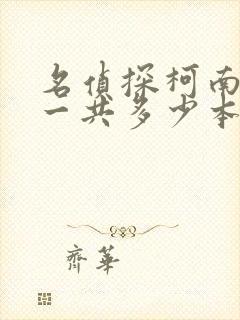 名偵探柯南
一共多少本
齊華